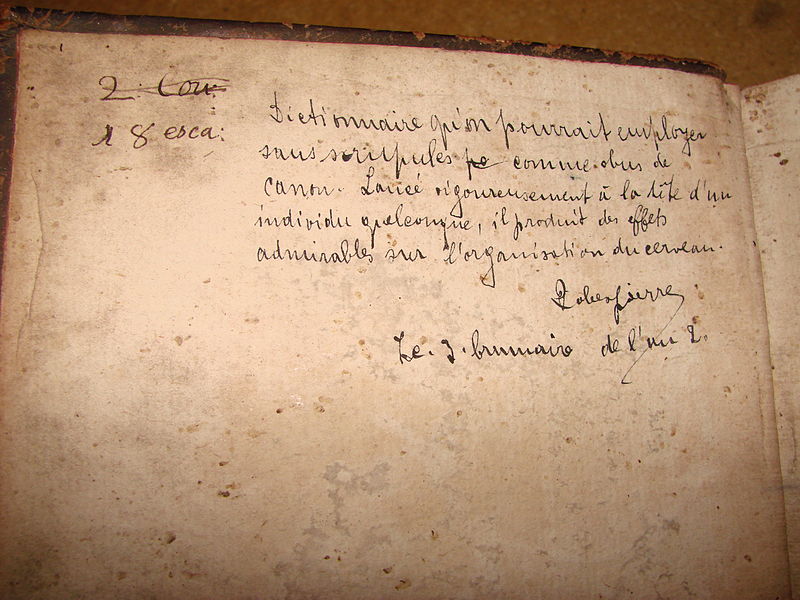 2. Cou.
18 esca:
Dictionnaire qu'on pourrait employer
sans scrupules pe comme obus de
canon. Lancé vigoureusement à la tête d'un
individu quelconque, il produit des effets
admirables sur l'organisation du cerveau.
Robespierre
Le 3. brumaire de l'an 2.